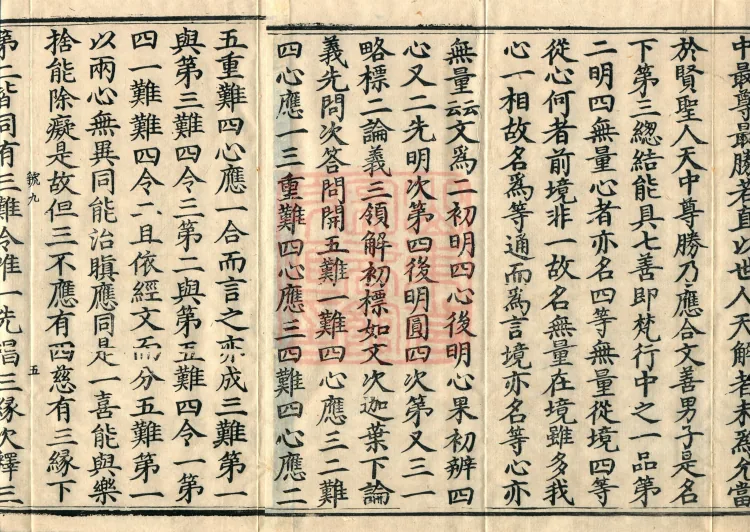 中最尊最勝者直以世人天解者和爲分當
於賢聖人天中尊勝乃應合文善男子是名
下第三總結能具七善即梵行中之一品第
二明四無量心者亦名四等無量從境四等
從心何者前境非一故名無量在境雖多我
心一相故名爲等通而爲言境亦名等心亦
無量云云文爲二初明四心後明心果初辨四
心又二先明次第四後明圓四次第又三一
略標二論義三領解初標如文次迦葉下論
義先問次答問開五難一難四心應三二難
四心應一三重難四心應三四難四心應二
五重難四心應一合而言之亦成三難第一
與第三難四令三第二與第五難四令一第
四一難難四令二且依經文而分五難第一
以兩心無異同能治瞋應同是一喜能與樂
捨能除癡是故但三不應有四慈有三緣下
號九
五
第二皆同有三難令惟一先唱三緣次釋三